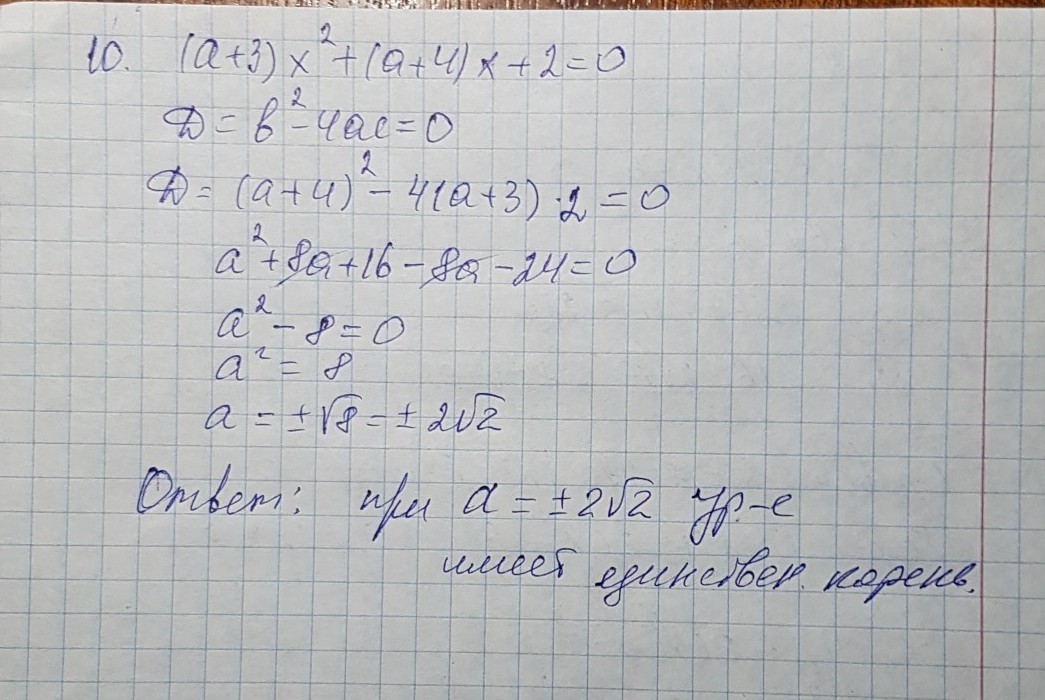 10. (a+3)x²+(a+4)x+2=0
D=b²-4ac=0
D=(a+4)²-4(a+3)·2=0
a²+8a+16-8a-24=0
a²-8=0
a²=8
a=±√8=±2√2
Ответ: при a=±2√2 ур-е
имеет единствен. корень.